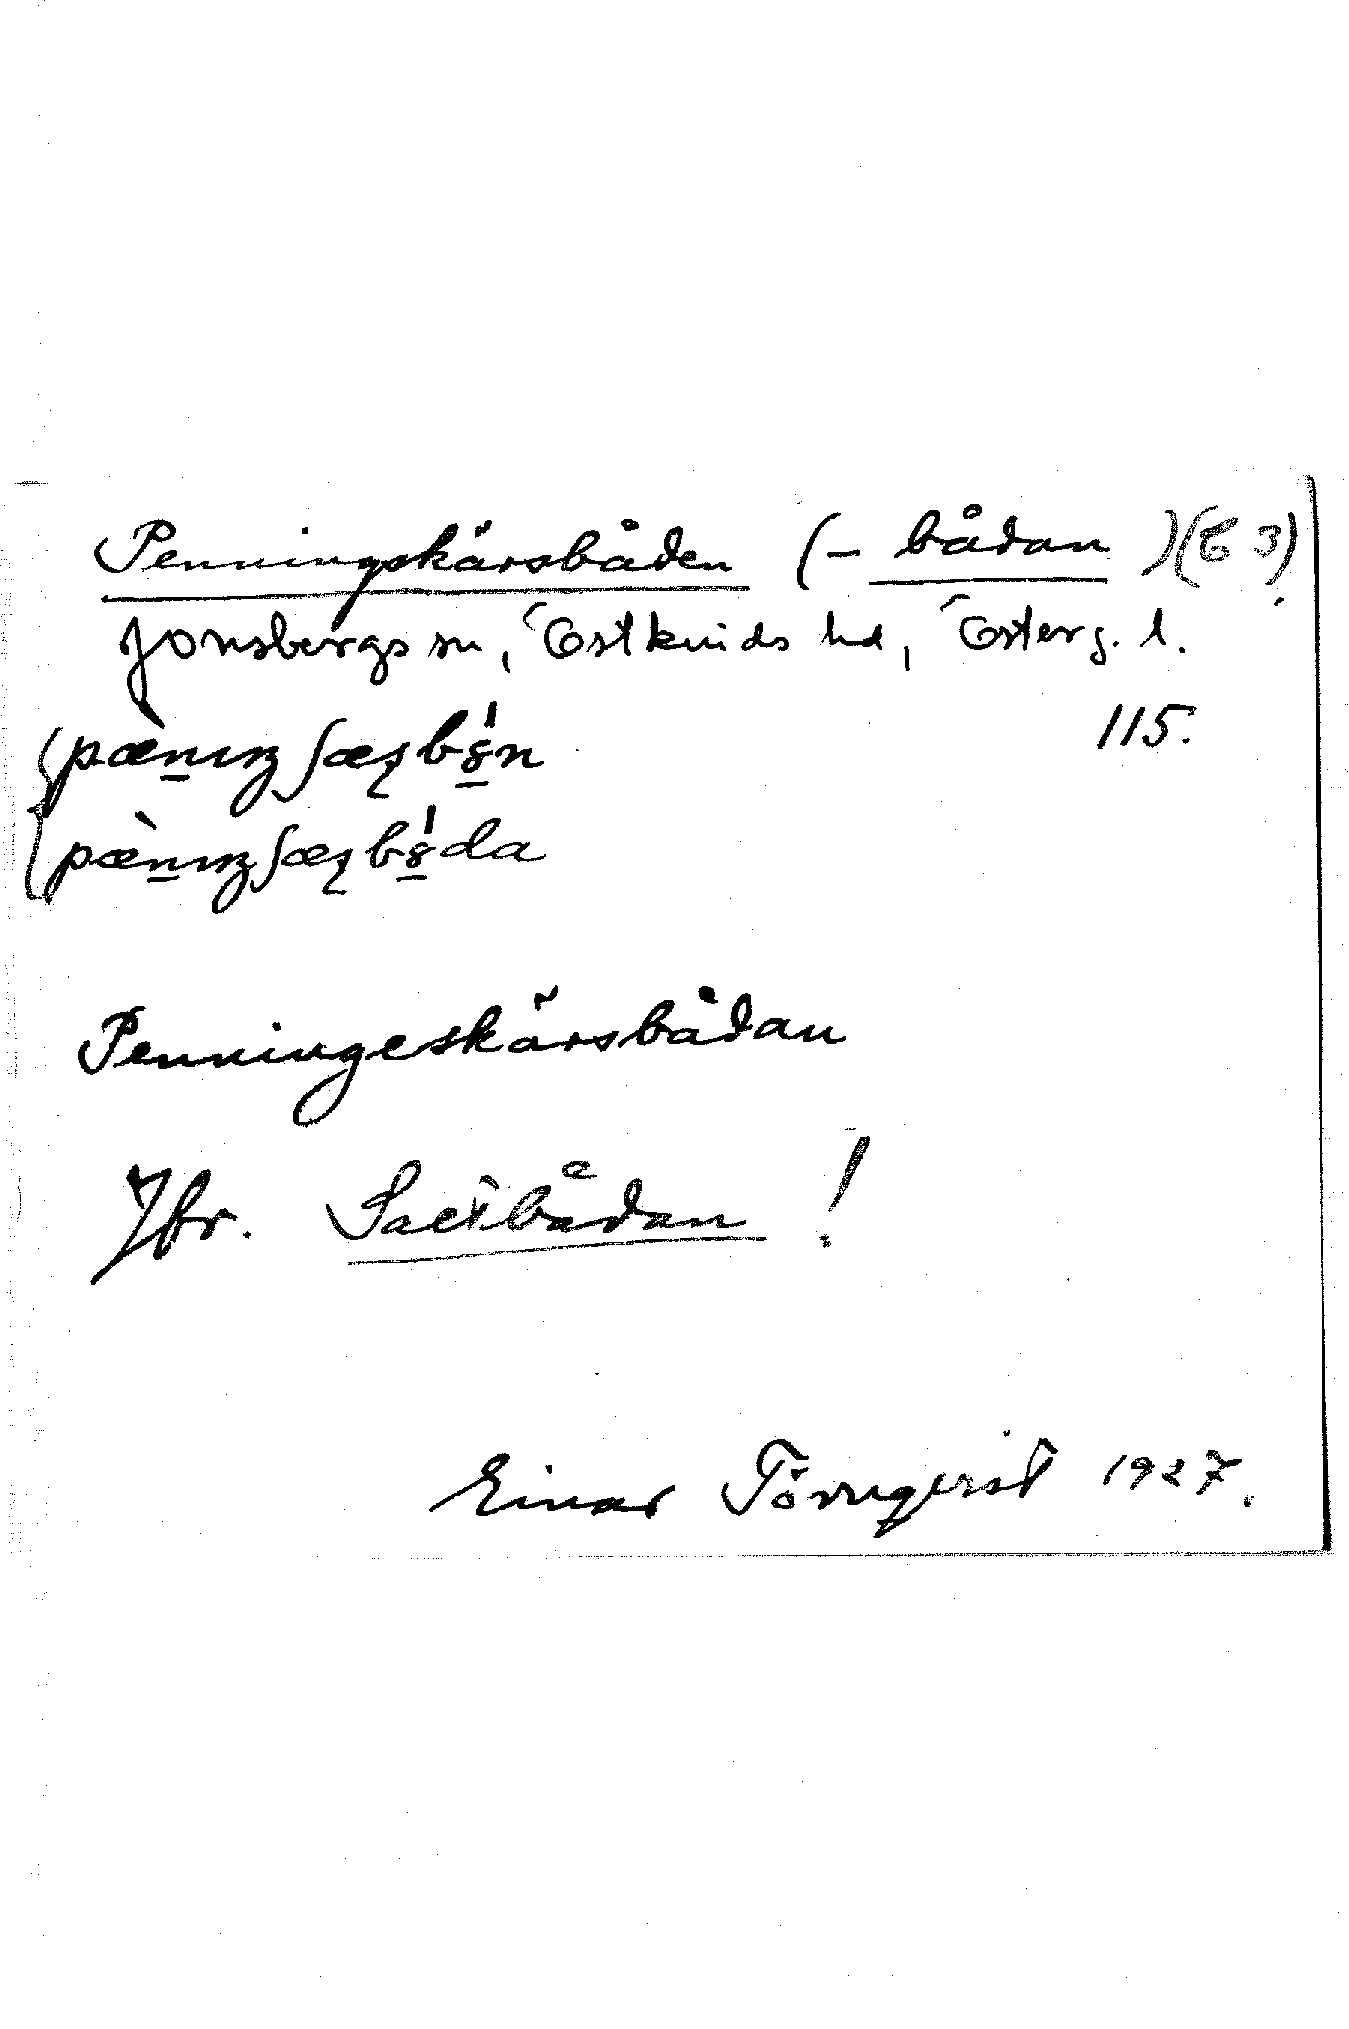 Penningskärsbåden (- bådan )(E 3)
Jonsbergs sn, Östkinds hd, Österg. l.
115.
Penningeskärsbådan
Jfr. Saltbådan !
Einar Törnqvist 1927.